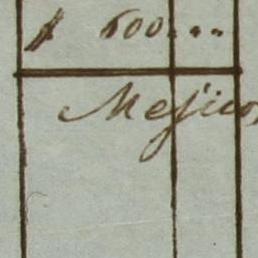 $ 600...
Mejico,